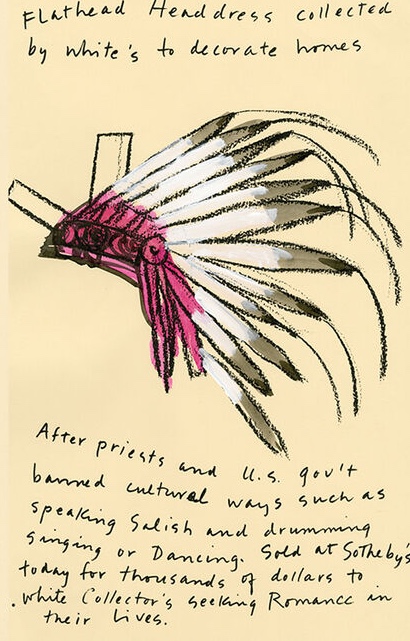 Flathead Headdress collected
by white's to decorate homes
After priests and U.S. gov't
banned cultural ways such as
speaking Salish and drumming
singing or Dancing. Sold at Sotheby's
today for thousands of dollars to
white Collector's seeking Romance in
their lives.